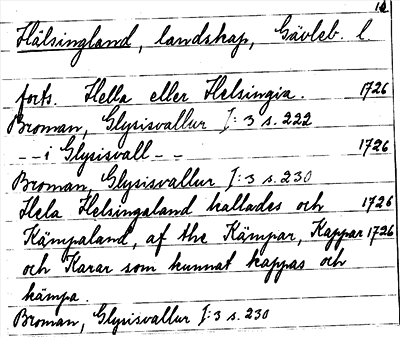 12
Hälsingland, landskap, Gävleb. l.
forts. Hella eller Helsingia. 1726
Broman, Glysisvallur I:3 s. 222
-- i Glysisvall -- 1726
Broman, Glysisvallur I:3 s. 230
Hela Helsingaland kallades och 1726
Kämpaland, af the Kämpar, Kappar 1726
och Karar som kunnat kappas och
kämpa.
Broman, Glysisvallur I:3 s. 230